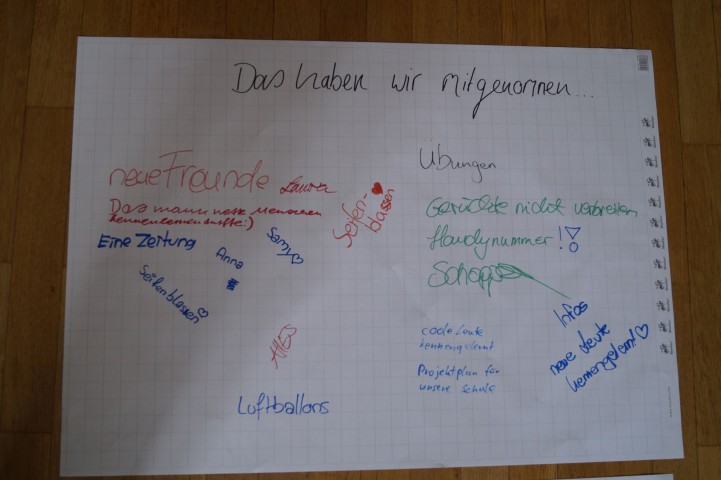 Das haben wir mitgenommen...
neue Freunde
Laura
Das mann nette Menschen
kennenlernen durfte:)
Eine Zeitung
Anna
Samy♡
Seifenblasen♡
Seifen-♥
blasen
ALLES
Luftballons
Übungen
Gerüchte nicht verbreiten
Handynummer!
Infos
neue Leute
kennengelernt♡
coole Leute
kennengelernt
Projektplan für
unsere Schule